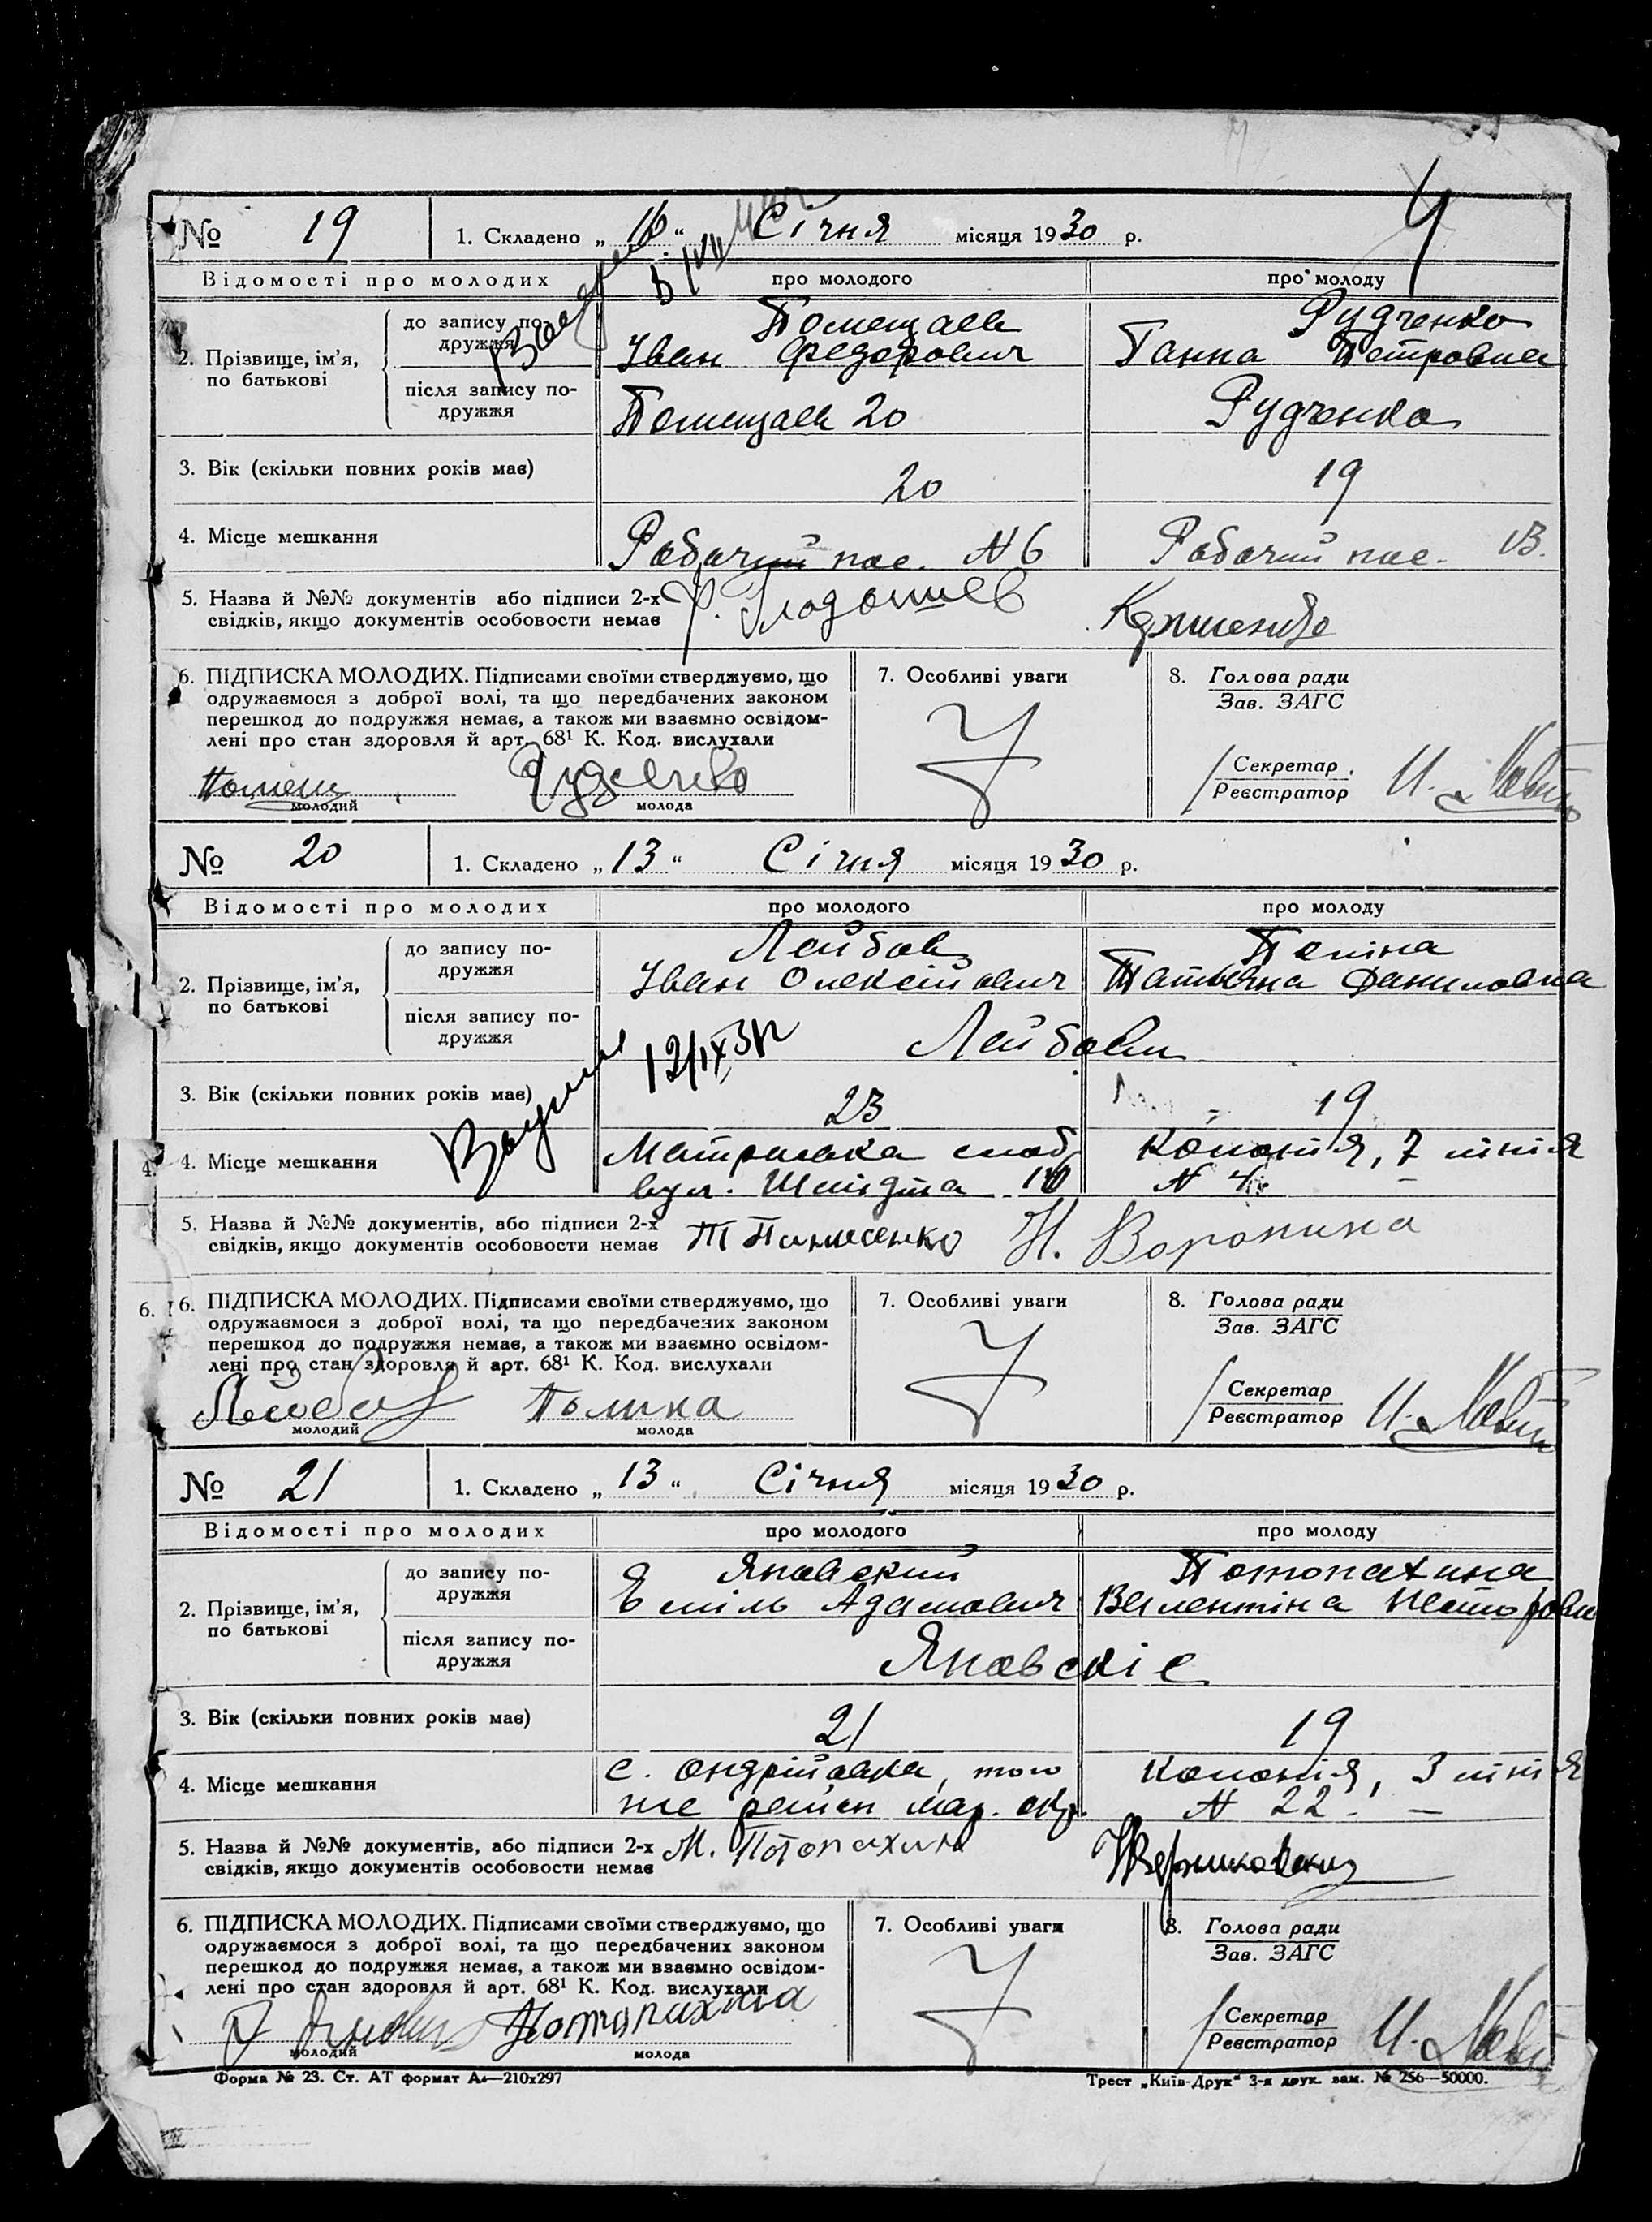 4
№ 19 1. Складено „ 16 “ Січня місяця 1930 р.
Відомості про молодих про молодого про молоду
2. Прізвище, ім’я, по батькові
до запису подружжя
Рудченко
Іван Федорович Ганна Петровна
після запису подружжя
20 Рудченко
3. Вік (скільки повних років має) 20 19
4. Місце мешкання Рабочий пос. N 6 Рабочий пос.
5. Назва й №№ документів або підписи 2-х
свідків, якщо документів особовости немає
6. ПІДПИСКА МОЛОДИХ. Підписами своїми стверджуємо, що
одружаємося з доброї волі, та що передбачених законом
перешкод до подружжя немає, а також ми взаємно освідом-
лені про стан здоровля й арт. 68¹ К. Код. вислухали
молодий молода
7. Особливі уваги
8. Голова ради
Зав. ЗАГС
Секретар
Реєстратор
№ 20 1. Складено „ 13 “ Січня місяця 1930 р.
Відомості про молодих про молодого про молоду
2. Прізвище, ім’я, по батькові
до запису по-
дружжя
Лейбов
Іван Олексійович Татьяна Даниловна
після запису по-
дружжя
Лейбови
12/IX
3. Вік (скільки повних років має) 23 19
4. Місце мешкання слоб. Колонія, 7 лінія
вул. Шмідта N 4
5. Назва й №№ документів, або підписи 2-х
свідків, якщо документів особовости немає
Н. Воронина
6. ПІДПИСКА МОЛОДИХ. Підписами своїми стверджуємо, що
одружаємося з доброї волі, та що передбачених законом
перешкод до подружжя немає, а також ми взаємно освідом-
лені про стан здоровля й арт. 68¹ К. Код. вислухали
молодий молода
7. Особливі уваги
8. Голова ради
Зав. ЗАГС
Секретар
Реєстратор
№ 21 1. Складено „ 13 “ Січня місяця 1930 р.
Відомості про молодих про молодого про молоду
2. Прізвище, ім’я, по батькові
до запису по-
дружжя
Яновский Потопахина
Еміль Адамович Валентіна
після запису по-
дружжя
Яновскіе
3. Вік (скільки повних років має) 21 19
4. Місце мешкання с. Андріївка, того Колонія, 3 лінія
же район Мар. окр. N 22
5. Назва й №№ документів, або підписи 2-х
свідків, якщо документів особовости немає
М. Потопахин
6. ПІДПИСКА МОЛОДИХ. Підписами своїми стверджуємо, що
одружаємося з доброї волі, та що передбачених законом
перешкод до подружжя немає, а також ми взаємно освідом-
лені про стан здоровля й арт. 68¹ К. Код. вислухали
Потопахина
молодий молода
7. Особливі уваги
8. Голова ради
Зав. ЗАГС
Секретар
Реєстратор
Форма № 23. Ст. АТ формат А₄—210х297 Трест „Київ-Друк“ 3-я друк. зам. № 256—50000.